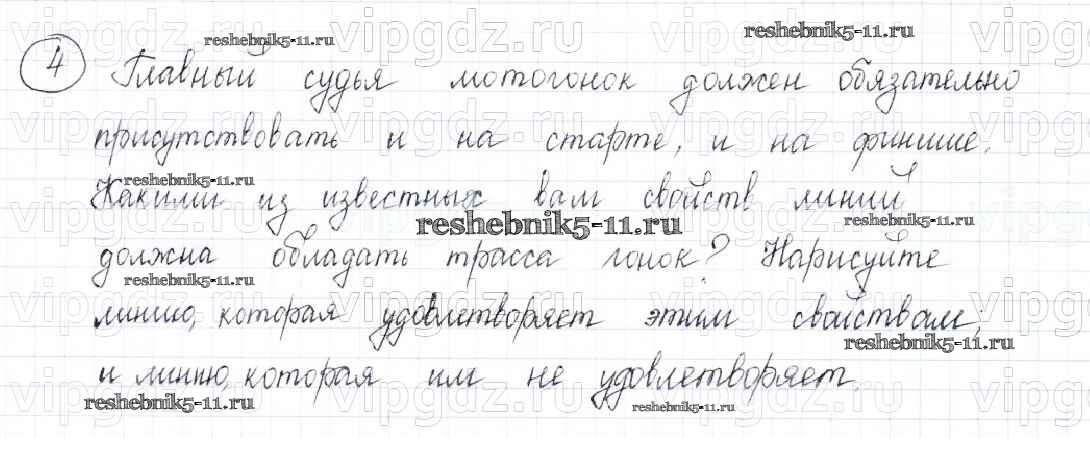 vipgdz.ru vipgdz.ru vipgdz.ru vipgdz.ru
reshebnik5-11.ru reshebnik5-11.ru
4 Главный судья мотогонок должен обязательно
присутствовать и на старте, и на финише.
reshebnik5-11.ru
Какими из известных вам свойств линий
reshebnik5-11.ru reshebnik5-11.ru
должна обладать трасса гонок? Нарисуйте
reshebnik5-11.ru
линию, которая удовлетворяет этим свойствам,
reshebnik5-11.ru
и линию, которая им не удовлетворяет.
reshebnik5-11.ru reshebnik5-11.ru